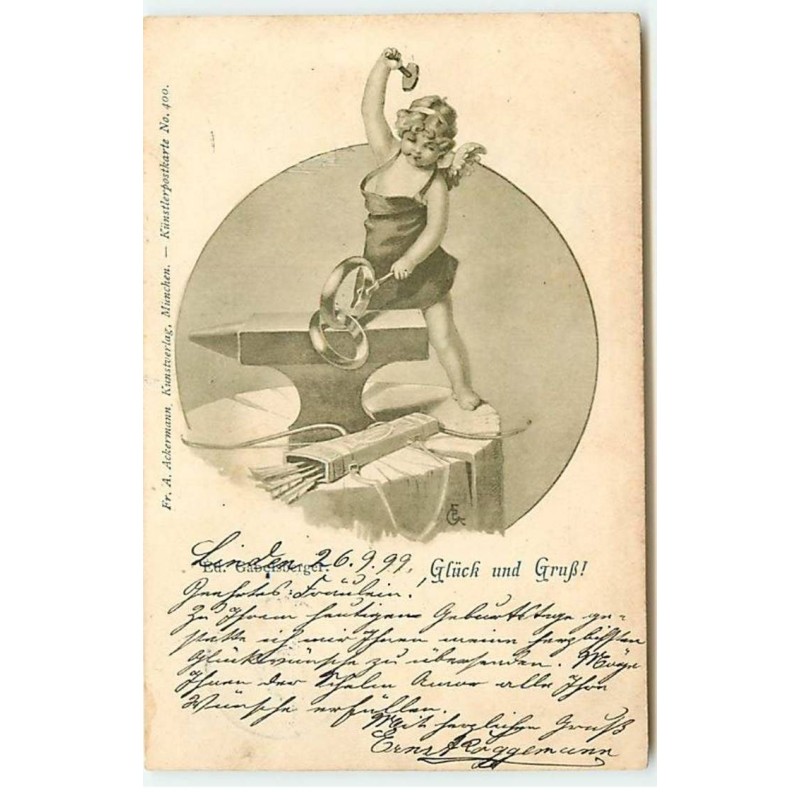 Fr. A. Ackermann, Kunstverlag, München. — Künstlerpostkarte No. 400.
EG
Ed. Gabelsberger.
Glück und Gruß!
Linden 26.9.99.
Geehrtes Fräulein!
Zu Ihrem heutigen Geburtstage ge-
statte ich mir Ihnen meine herzlichsten
Glückwünsche zu übersenden. Möge
Ihnen der Schelm Amor alle Ihre
Wünsche erfüllen.
Mit herzlichem Gruß
Ernst Roggemann